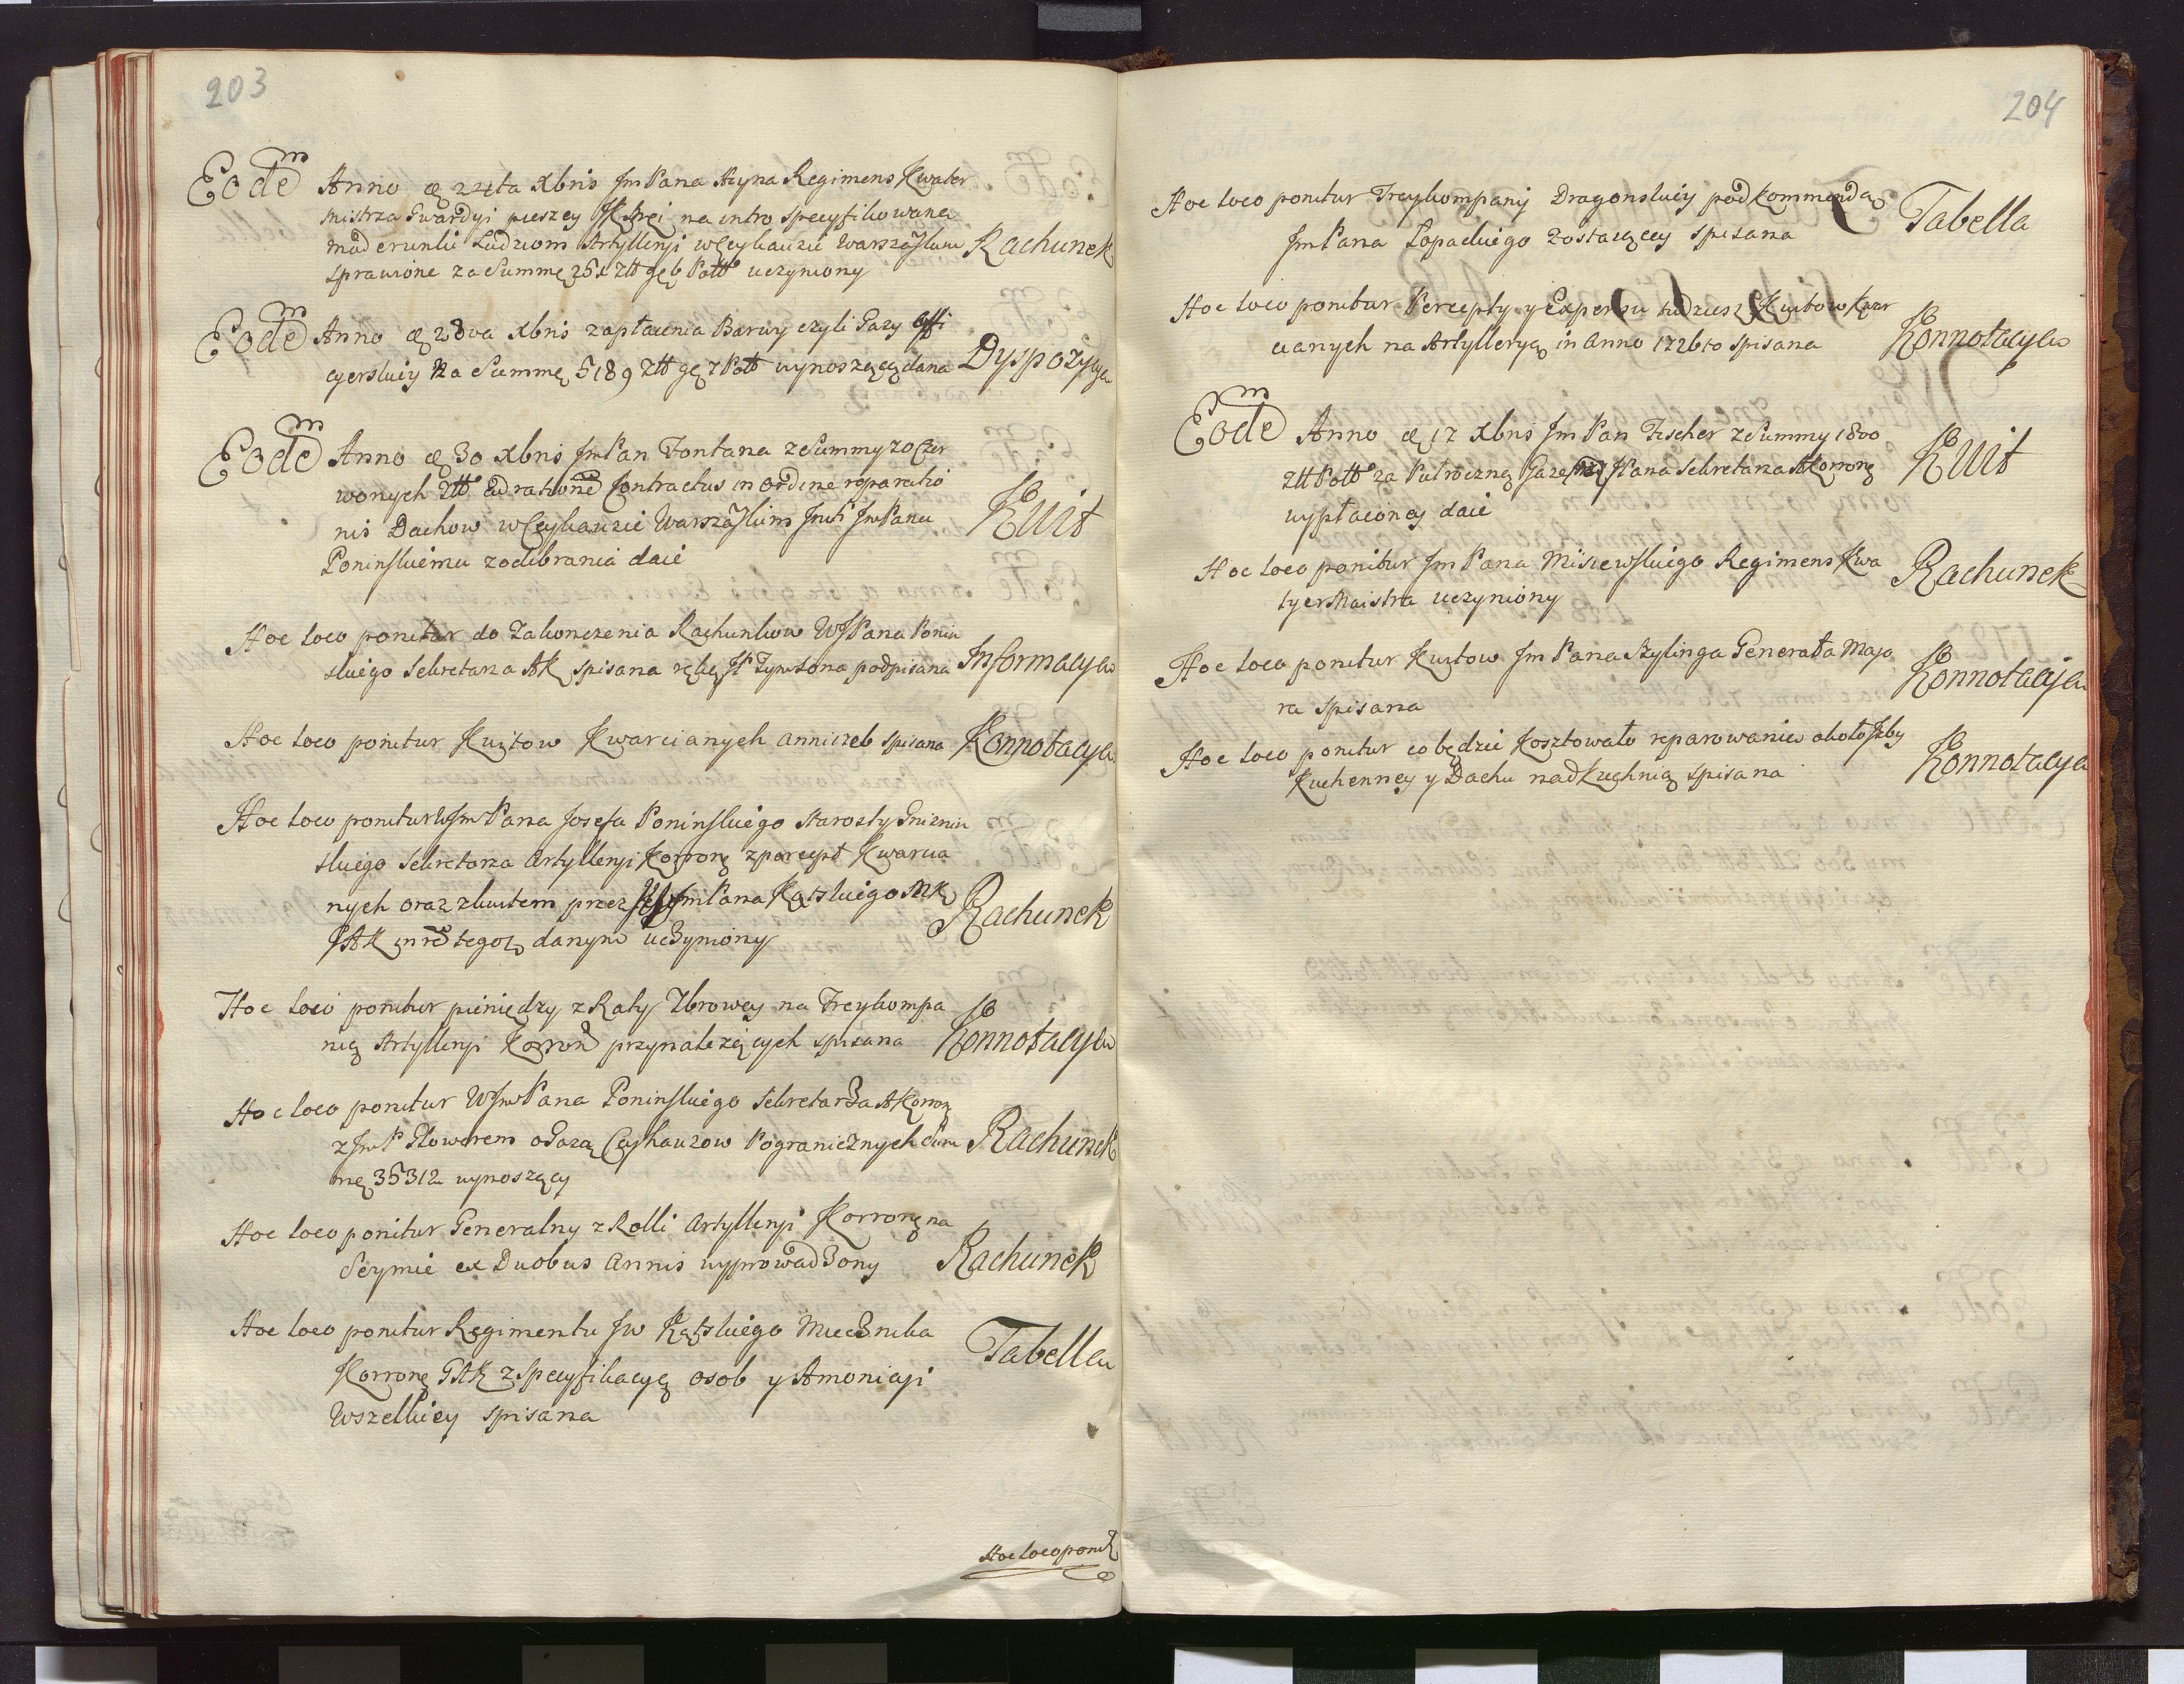 203
Eodem Anno d 24ta Xbris Jm Pana Heyna Regimens Kwater
mistrza Gwardyi pieszey na intro specyfikowane
moderunki Ludziom Artylleryi w Ceyhauzie Warszawskim Rachunek
sprawione za Summę Ztt gr 6 Poltt uczyniony
Eodem Anno d 28va Xbris zapłacenia Barwy czyli Gazy Offi
cyerskiey na Summę 5189 Ztt gr 7 Poltt wynoszącą dana Dyspozycya
Eodem Anno d 30 Xbris Jm Pan Fontana z Summy 20 Czer
wonych Ztt ad rationem Contractus in ordine reparatio
nis Dachow w Ceyhauzie Warszawskim Jm Panu Kwit
Poninskiemu z odebrania daie
Hoc loco ponitur do Zakonczenia Rachunkow WJPana Ponin
skiego Sekretarza AK spisana ręką JP Zymsona podpisana Informacya
Hoc loco ponitur Kwitow Kwarcianych spisana Konnotacya
Hoc loco ponitur WJm Pana Josefa Poninskiego Starosty Gnieznin
skiego Sekretarza Artylleryi Koronney z percept Kwarcia
nych oraz z kwitem przez Jm Pana Kątskiego MK Rachunek
GAK in rem tegoż danym uczyniony
Hoc loco ponitur pieniędzy z Raty Zbrowey na Freykompa
nię Artylleryi Koronney przynależących spisana Konnotacya
Hoc loco ponitur WJm Pana Poninskiego Sekretarza AKoronn
z Jm P Glowerem o Gazę Ceyhauzow Pogranicznych Sum Rachunek
mę 35312 wynoszący
Hoc loco ponitur Generalny z Rolli Artylleryi Koronney na
Seymie ex Duobus Annis wyprowadzony Rachunek
Hoc loco ponitur Regimentu Jw Kątskiego Miecznika
Koronne GAK z specyfikacyą osob y Amonicyi Tabella
Wszelkiey spisana
Hoc loco ponit
204
Hoc loco ponitur Freykompanij Dragonskiey pod kommendą
Jm Pana Łopackiego zostaiącey spisana Tabella
Hoc loco ponitur Percepty y Expensu tudziesz Kwitow Kwar
cianych na Artylleryą in Anno 1726to spisana Konnotacya
Eodem Anno d 17 Xbris Jm Pan Fischer z Summy 1800
Ztt Poltt za Pułroczną Gazę JPana Sekretarza AKoronn Kwit
wypłaconey daie
Hoc loco ponitur Jm Pana Misiewskiego Regimens Kwa
tyermaistra uczyniony Rachunek
Hoc loco ponitur Kwitow Jm Pana Szylinga Generała Majo
ra spisana Konnotacya
Hoc loco ponitur co będzie kosztowało reparowanie około Izby
Kuchenney y Dachu nad Kuchnią spisana Konnotacya